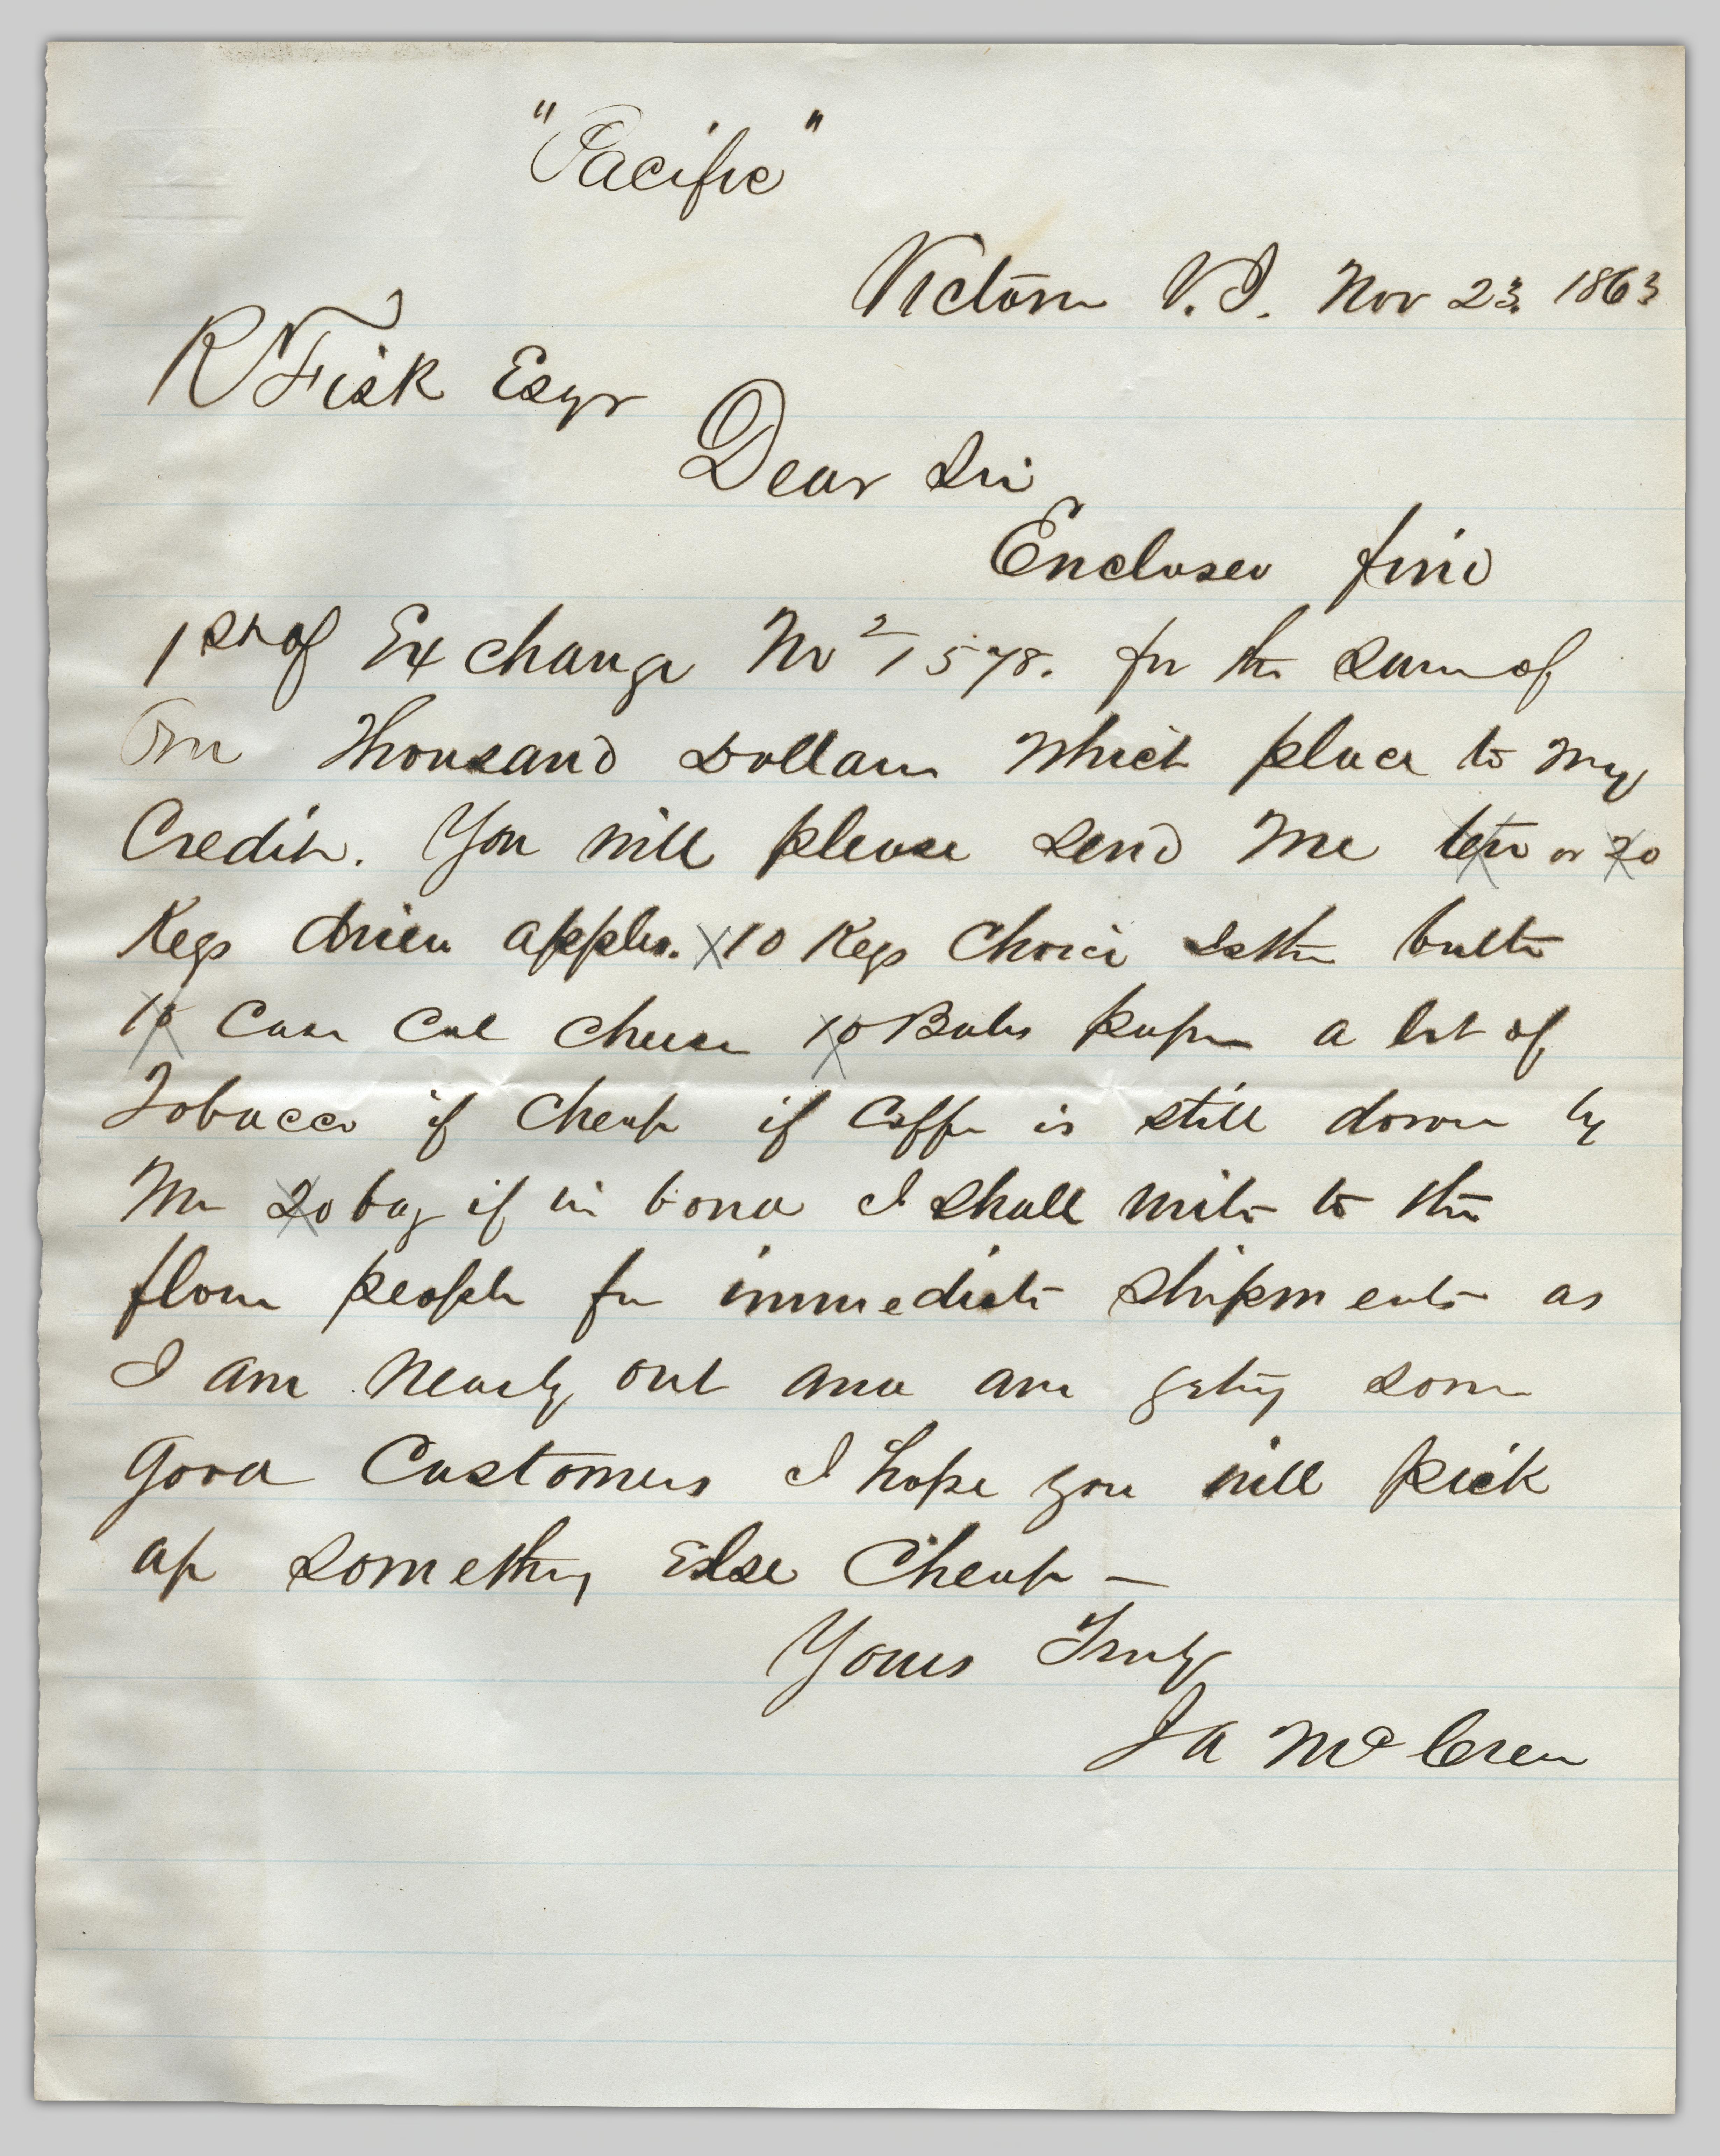 "Pacific"
Victoria V.I. Nov 23. 1863
R Fisk Esqr
Dear Sir
Enclosed find
1st of Exchange No 21578. for the sum of
One Thousand Dollars which place to my
Credit. You will please send me ten or 20
Kegs dried apples. 10 Kegs Choice Isthm butter
10 Case Cal Cheese 10 Bales paper a lot of
Tobacco if Cheap if Coffee is still down by
Me 20 bag if in bond I shall write to the
flour people for immediate shipments as
I am nearly out and am geting some
good Customers I hope you will pick
up something Else Cheap —
Yours Truly
J A McCrea